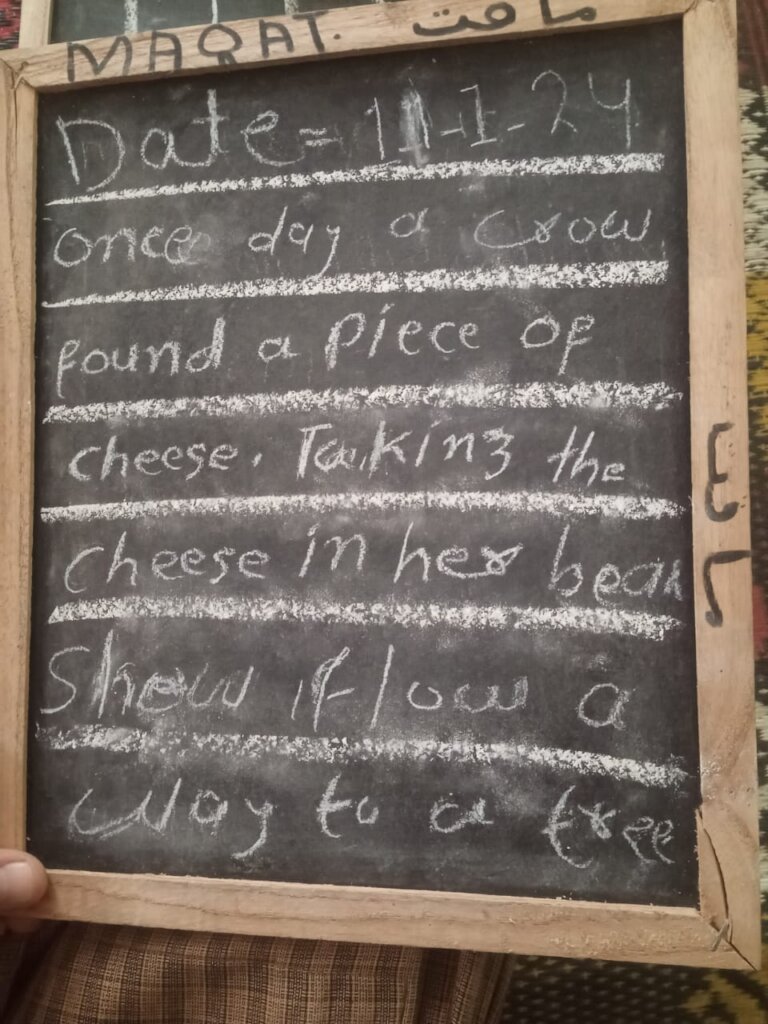 MAQAT. ماقت
Date = 11-1-24
once day a crow
found a piece of
cheese. Taking the
cheese in her beak
Show if low a
way to a tree